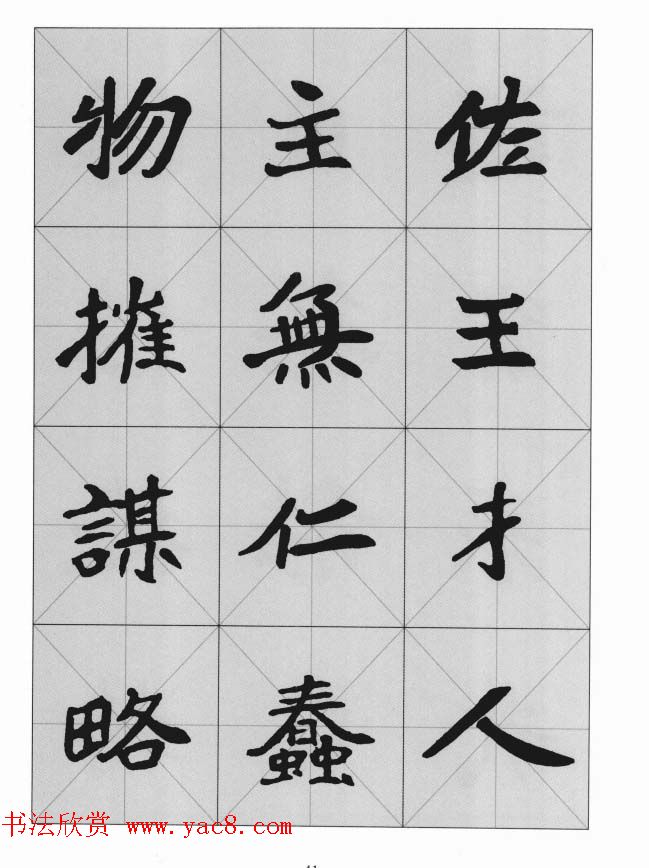 佐王才人
主無仁蠢
物搉謀略
书法欣赏 www.yac8.com